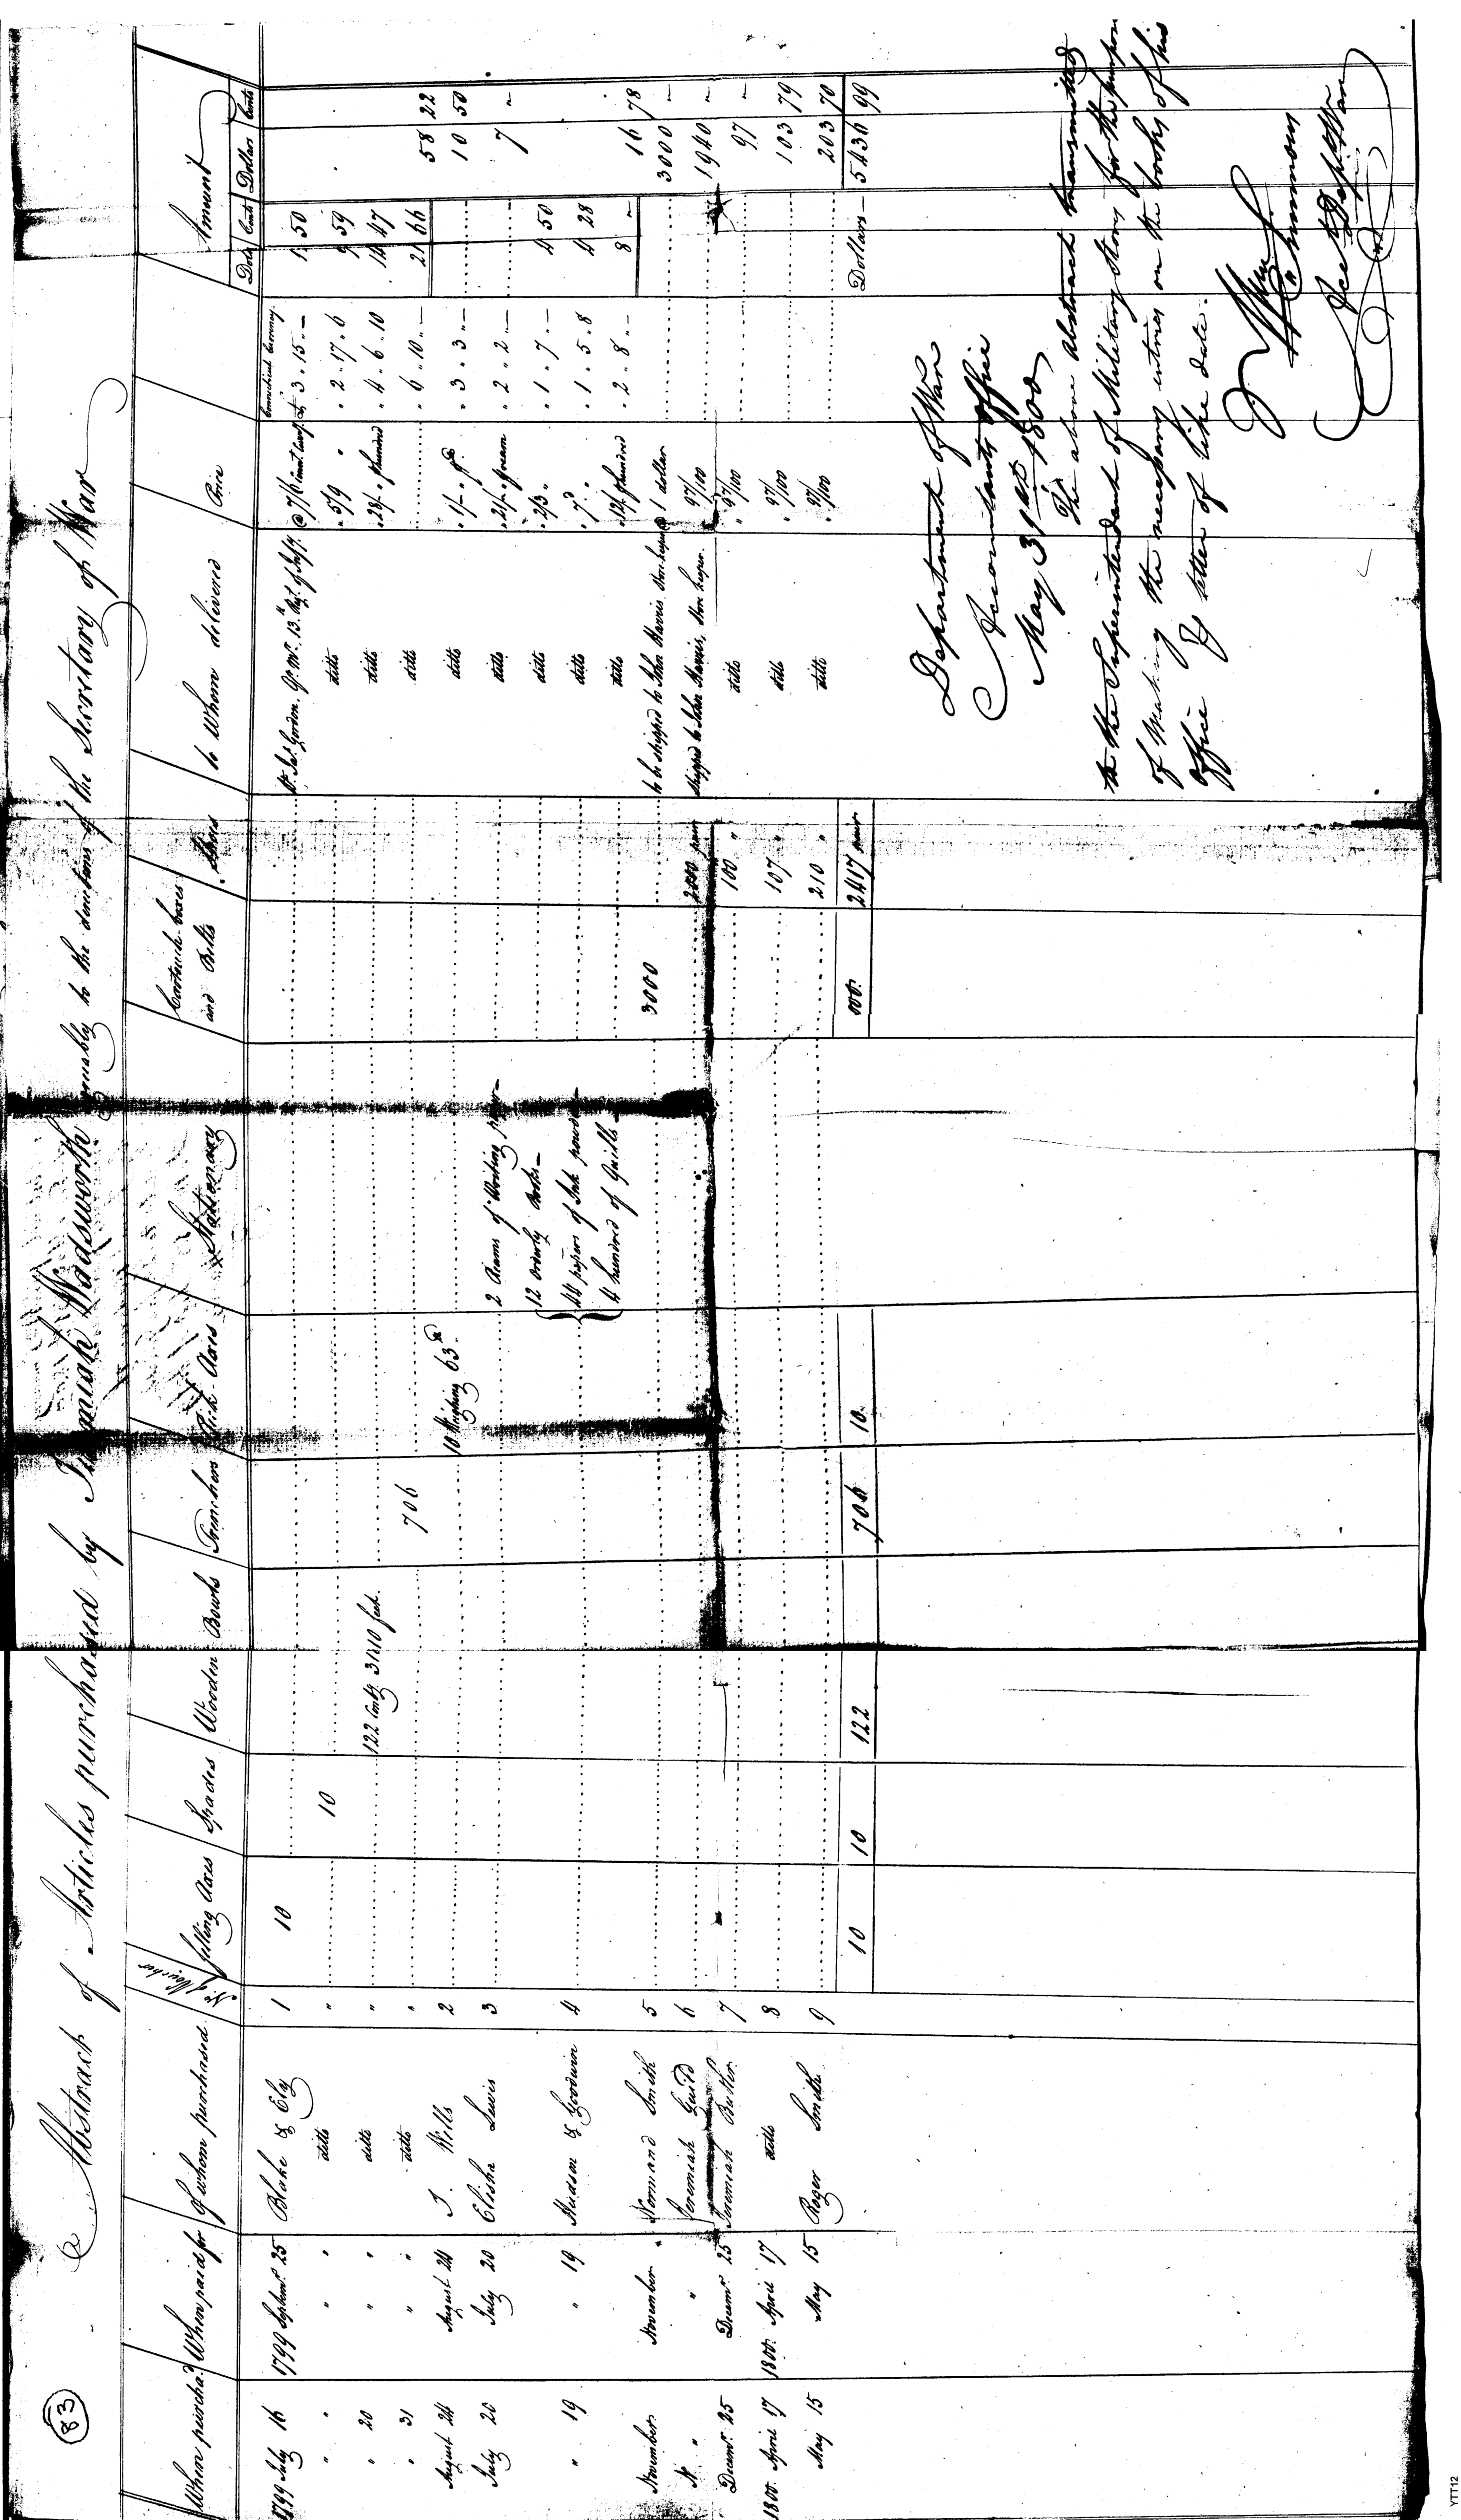 83
Abstract of Articles purchased by Jeremiah Wadsworth agreeably to the directions of the Secretary of War
When purchas'd When paid for Of whom purchased No. of Voucher felling Axes Spades Wooden Bowls Trenchers Pick-Axes Stationary Cartouch-boxes and Belts Shoes to Whom delivered Price Amount
Connecticut Currency Dolls Cents Dollars Cents
1799 July 16 1799 Septemr. 25 Blake & Clay 1 10 Jas. Gordon, Qr. Mr. 13th Regt. of Infy. @ 7/6 £3 " 15 " — 1 50
" " " " ditto " 10 ditto " 5/9 " " 2 " 17 " 6 9 59
" 20 " " ditto " 122 Contg. 3110 feet ditto " 28/- " " 4 " 6 " 10 14 47
" 31 " " ditto " 706 ditto " 6 " 10 " — 21 66 58 22
August 24 August 24 J. Wills 2 10 Weighing 63 lb ditto " 1/- " lb " 3 " 3 " — 10 50
July 20 July 20 Elisha Lewis 3 2 Reams of Writing paper ditto " 21/- " ream " 2 " 2 " — 7 "
12 Orderly Books ditto " 2/3 " " 1 " 7 " — 4 50
" 19 " 19 Hudson & Goodwin 4 44 papers of Ink powder ditto " 7d. " " 1 " 5 " 8 4 28
4 hundred of Quills ditto " 12/- hundred " 2 " 8 " — 8 — 16 78
November November Normand Smith 5 3000 to be shipped to John Harris Store keeper @ 1 dollar 3000 —
" " Jeremiah Guild 6 2000 pair shipped to John Harris, Store keeper " 97/100 1940 —
Decemr. 25 Decemr. 25 Jeremiah Butler 7 100 " ditto " 97/100 97 —
1800 April 17 1800 April 17 ditto 8 107 " ditto " 97/100 103 79
May 15 May 15 Roger Smith 9 210 " ditto " 97/100 203 70
10 10 122 706 10 2417 pair Dollars — 5436 99
Department of War
Accountants Office
May 31st 1800
The above Abstract transmitted
to the Superintendent of Military Stores for the purpose
of making the necessary entries on the books of his
office by letter of like date.
Wm Simmons
Acct Dept War
YTT12